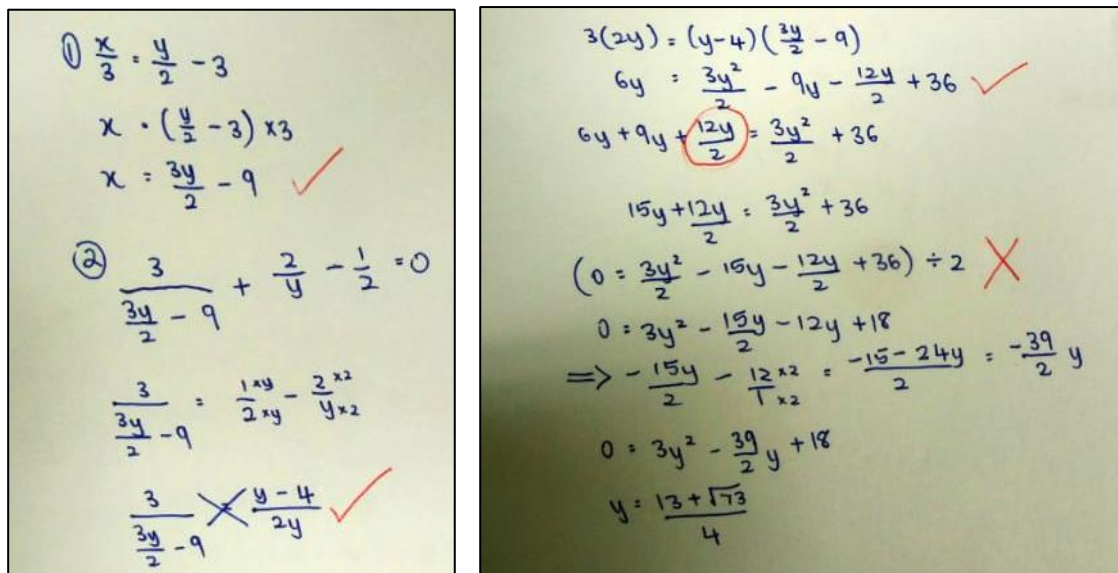 ① x/3 = y/2 - 3
x = (y/2 - 3) ×3
x = 3y/2 - 9
② 3/(3y/2 - 9) + 2/y - 1/2 = 0
3/(3y/2 - 9) = 1×y/2×y - 2×2/y×2
3/(3y/2 - 9) = y-4/2y
3(2y) = (y-4)(3y/2 - 9)
6y = 3y²/2 - 9y - 12y/2 + 36
6y + 9y + 12y/2 = 3y²/2 + 36
15y + 12y/2 = 3y²/2 + 36
(0 = 3y²/2 - 15y - 12y/2 + 36) ÷ 2
0 = 3y² - 15y/2 - 12y + 18
=> - 15y/2 - 12×2/1×2 = -15-24y/2 = -39/2 y
0 = 3y² - 39/2 y + 18
y = 13+√73/4